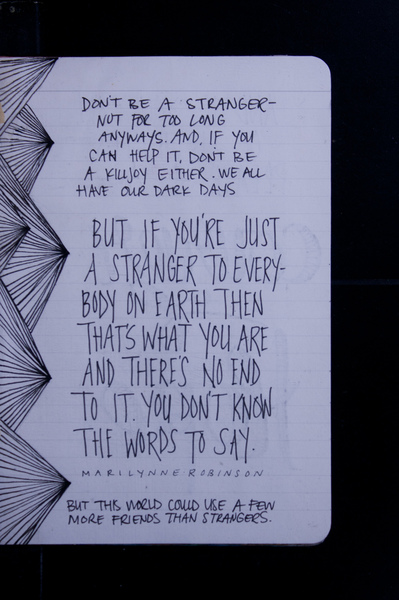 DON'T BE A STRANGER-
NOT FOR TOO LONG
ANYWAYS. AND, IF YOU
CAN HELP IT, DON'T BE
A KILLJOY EITHER. WE ALL
HAVE OUR DARK DAYS
BUT IF YOU'RE JUST
A STRANGER TO EVERY-
BODY ON EARTH THEN
THAT'S WHAT YOU ARE
AND THERE'S NO END
TO IT. YOU DON'T KNOW
THE WORDS TO SAY.
MARILYNNE ROBINSON
BUT THIS WORLD COULD USE A FEW
MORE FRIENDS THAN STRANGERS.